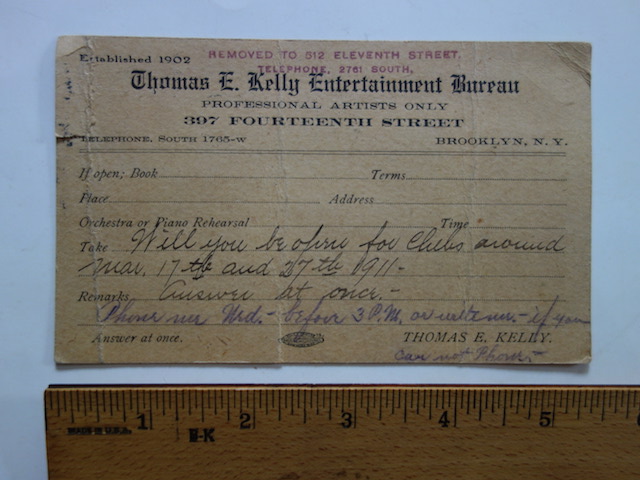 Established 1902
REMOVED TO 512 ELEVENTH STREET.
TELEPHONE, 2761 SOUTH,
Thomas E. Kelly Entertainment Bureau
PROFESSIONAL ARTISTS ONLY
397 FOURTEENTH STREET
TELEPHONE, SOUTH 1765-W BROOKLYN, N. Y.
If open; Book Terms
Place Address
Orchestra or Piano Rehearsal Time
Take Will you be open for Clubs around
Mar. 17th and 27th 1911-
Remarks Answer at once.-
Phone me Wed.- before 3 P.M. or write me.- if you
Answer at once. THOMAS E. KELLY.
can not Phone.-
1 2 3 4 5
MADE IN U.S.A.